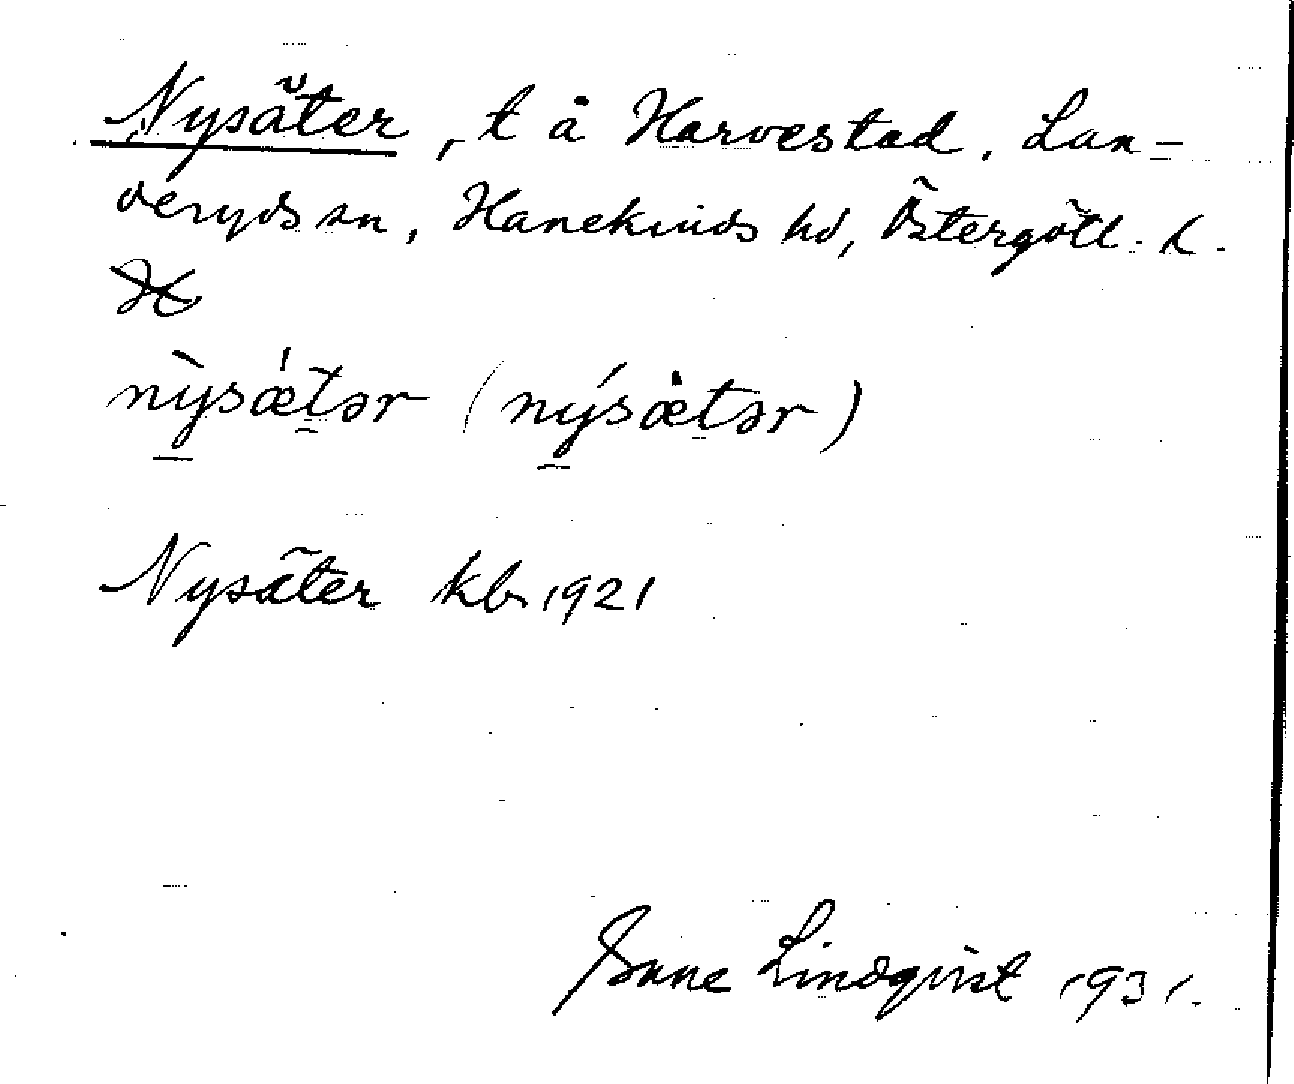 Nysäter, t å Harvestad, Lan-
deryds sn, Hanekinds hd, Östergötl. l.
nỳsǽtər (nýsæ̀tər)
Nysäter kb 1921
Sune Lindqvist 1931.